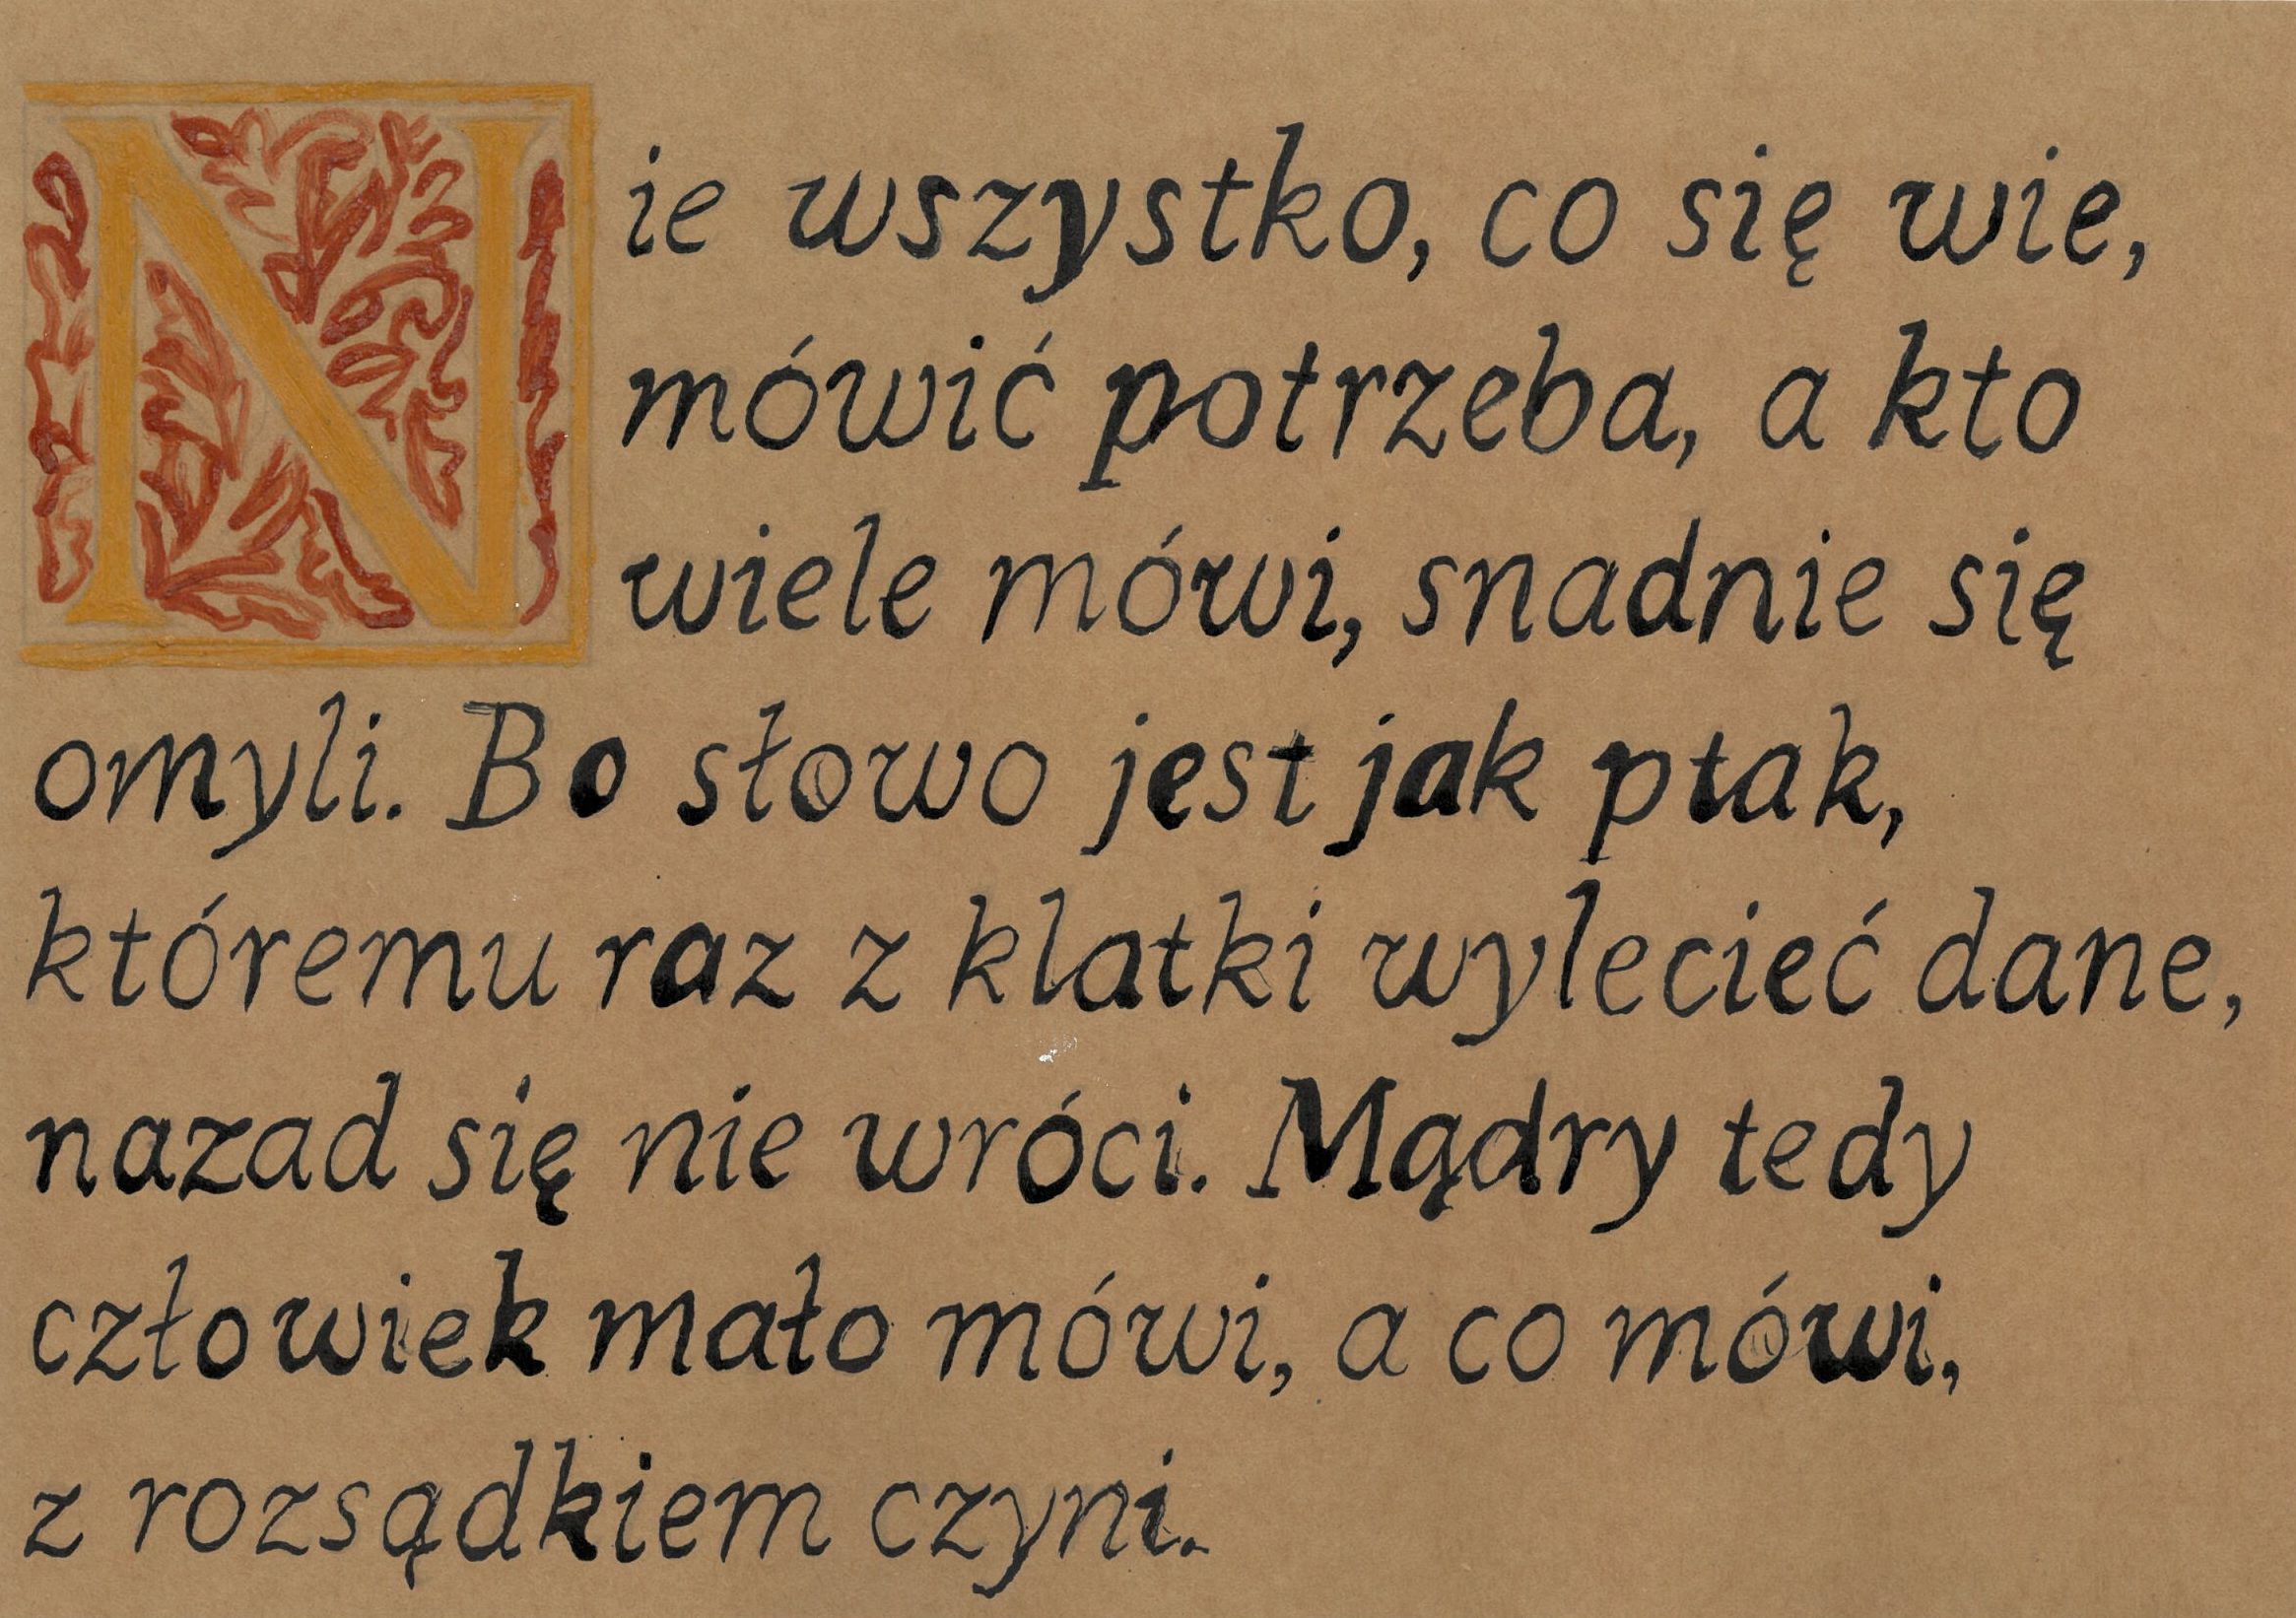 Nie wszystko, co się wie,
mówić potrzeba, a kto
wiele mówi, snadnie się
omyli. Bo słowo jest jak ptak,
któremu raz z klatki wylecieć dane,
nazad się nie wróci. Mądry tedy
człowiek mało mówi, a co mówi,
z rozsądkiem czyni.